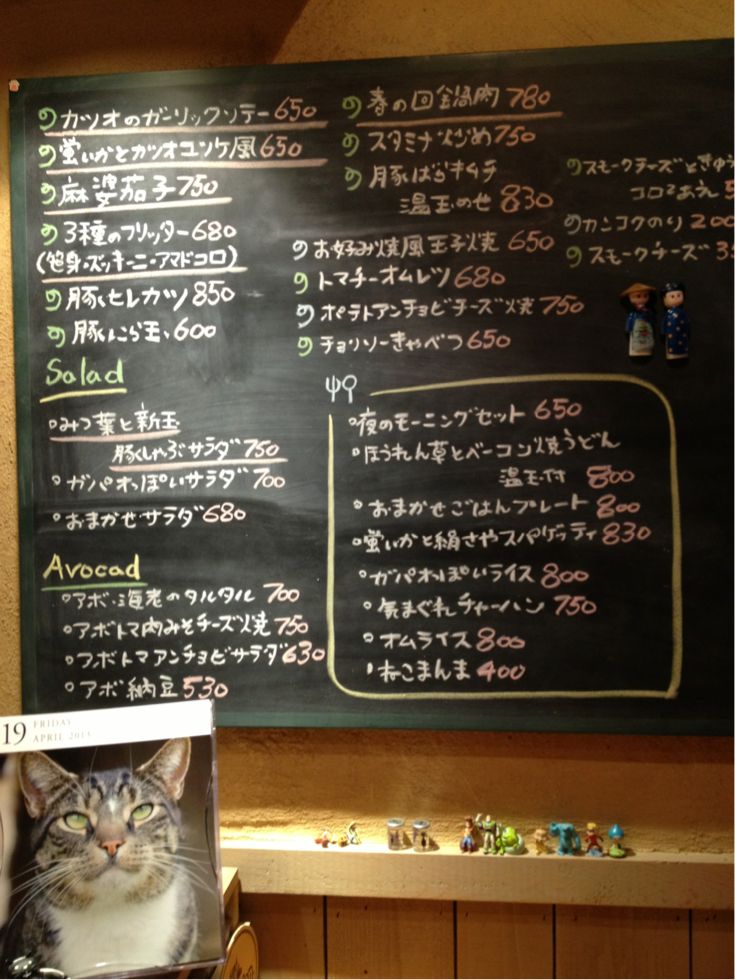 カツオのガーリックソテー650
蛍いかとカツオユッケ風650
麻婆茄子750
3種のフリッター680
(笹身・ズッキーニ・アマドコロ)
豚ヒレカツ850
豚にら玉 600
Salad
みつ葉と新玉
豚しゃぶサラダ750
ガパオっぽいサラダ700
おまかせサラダ680
Avocad
アボ・海老のタルタル 700
アボトマ肉みそチーズ焼750
アボトマアンチョビサラダ630
アボ納豆530
春の回鍋肉780
スタミナ炒め750
豚ばらキムチ
温玉のせ 830
お好み焼風玉子焼 650
トマチーオムレツ 680
ポテトアンチョビチーズ焼 750
チョリソーきゃべつ650
スモークチーズときゅう
コロコロあえ5
カンコクのり200
スモークチーズ 3
夜のモーニングセット 650
ほうれん草とベーコン焼うどん
温玉付 800
おまかせごはんプレート 800
蛍いかと絹さやスパゲッティ830
ガパオっぽいライス 800
気まぐれチャーハン 750
オムライス800
ねこまんま 400
19 FRIDAY
APRIL 2013